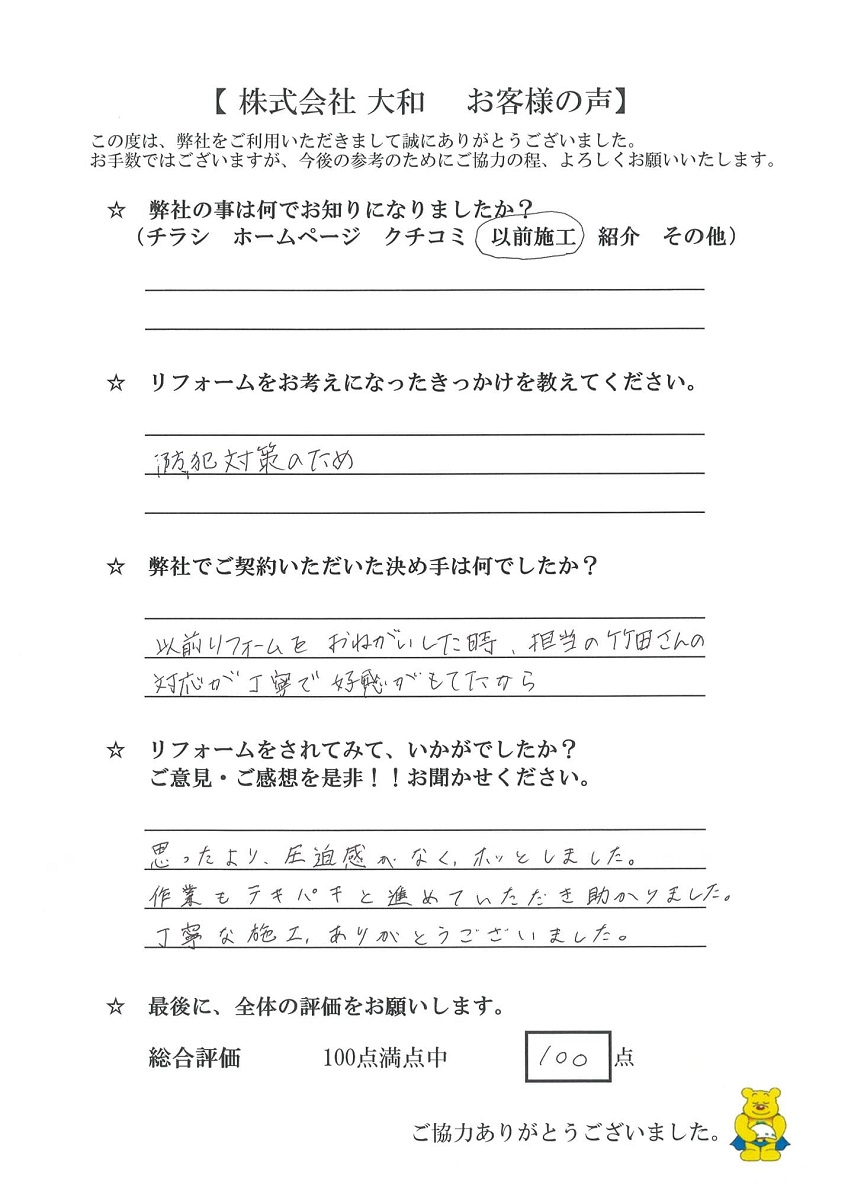 【 株式会社 大和　お客様の声】
この度は、弊社をご利用いただきまして誠にありがとうございました。
お手数ではございますが、今後の参考のためにご協力の程、よろしくお願いいたします。
☆　弊社の事は何でお知りになりましたか？
（チラシ　ホームページ　クチコミ　以前施工　紹介　その他）
☆　リフォームをお考えになったきっかけを教えてください。
防犯対策のため
☆　弊社でご契約いただいた決め手は何でしたか？
以前リフォームを おねがいした時、担当の竹田さんの
対応が丁寧で好感がもてたから
☆　リフォームをされてみて、いかがでしたか？
ご意見・ご感想を是非！！お聞かせください。
思ったより、圧迫感がなく、ホッとしました。
作業もテキパキと進めていただき助かりました。
丁寧な施工、ありがとうございました。
☆　最後に、全体の評価をお願いします。
総合評価　100点満点中　100 点
ご協力ありがとうございました。